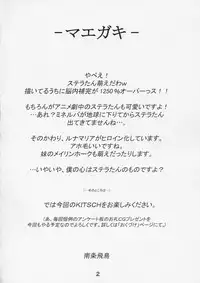 - マエガキ -
やべえ!
ステラたん萌えだわw
描いてるうちに脳内補完が1250%オーバーっス!!
もちろんがアニメ劇中のステラたんも可愛いですよ!
…あれ?ミネルバが地球に下りてからステラたん
出てきてませんね…。
そのかわり、ルナマリアがヒロイン化しています。
アホ毛いいですね。
妹のメイリンホークも萌えだったりします。
…いやいや、僕の心はステたんのものですよ?
では今回のKITSCHをお楽しみください。
(あ、毎回恒例のアンケート板のお礼CGプレゼントを
今回もやる予定なのでよろしくです。詳しくは「おくづけ」ページにて。)
南条飛鳥
2